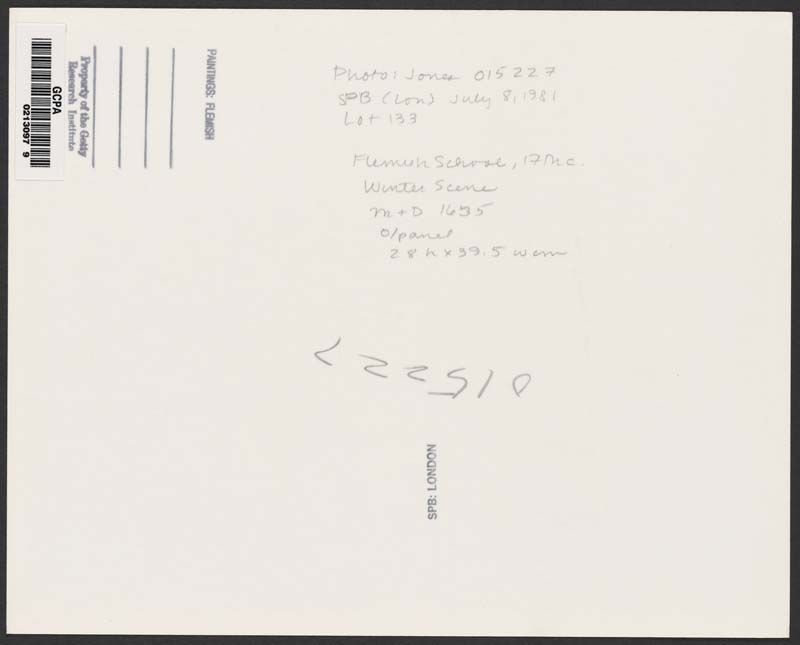 GCPA
0213097 9
Property of the Getty
Research Institute
PAINTINGS: FLEMISH
Photo: Jones 015227
SPB (Lon) July 8, 1981
Lot 133
Flemish School, 17th c.
Winter Scene
m+D 1655
O/panel
28 h x 39.5 w cm
015227
SPB: LONDON